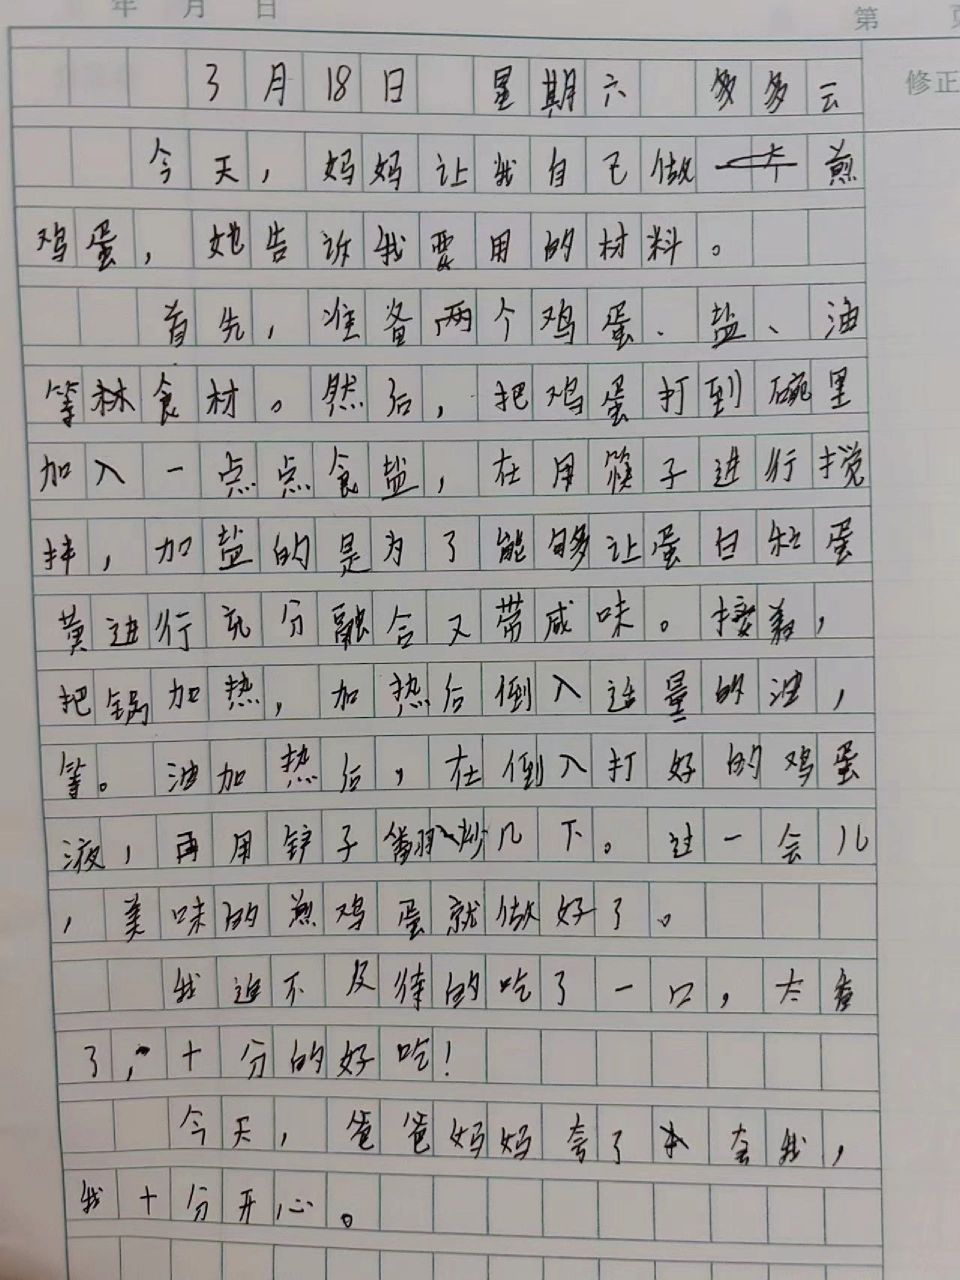 年 月 日 第 页
修正
3月18日 星期六 多多云
今天，妈妈让我自己做煎
鸡蛋，她告诉我要用的材料。
首先，准备两个鸡蛋、盐、油
等林食材。然后，把鸡蛋打到碗里
加入一点点食盐，在用筷子进行搅
拌，加盐的是为了能够让蛋白和蛋
黄进行充分融合又带咸味。接着，
把锅加热，加热后倒入适量的油，
等。油加热后，在倒入打好的鸡蛋
液，再用铲子翻炒几下。过一会儿
，美味的煎鸡蛋就做好了。
我迫不及待的吃了一口，太香
了，十分的好吃！
今天，爸爸妈妈夸了我，
我十分开心。